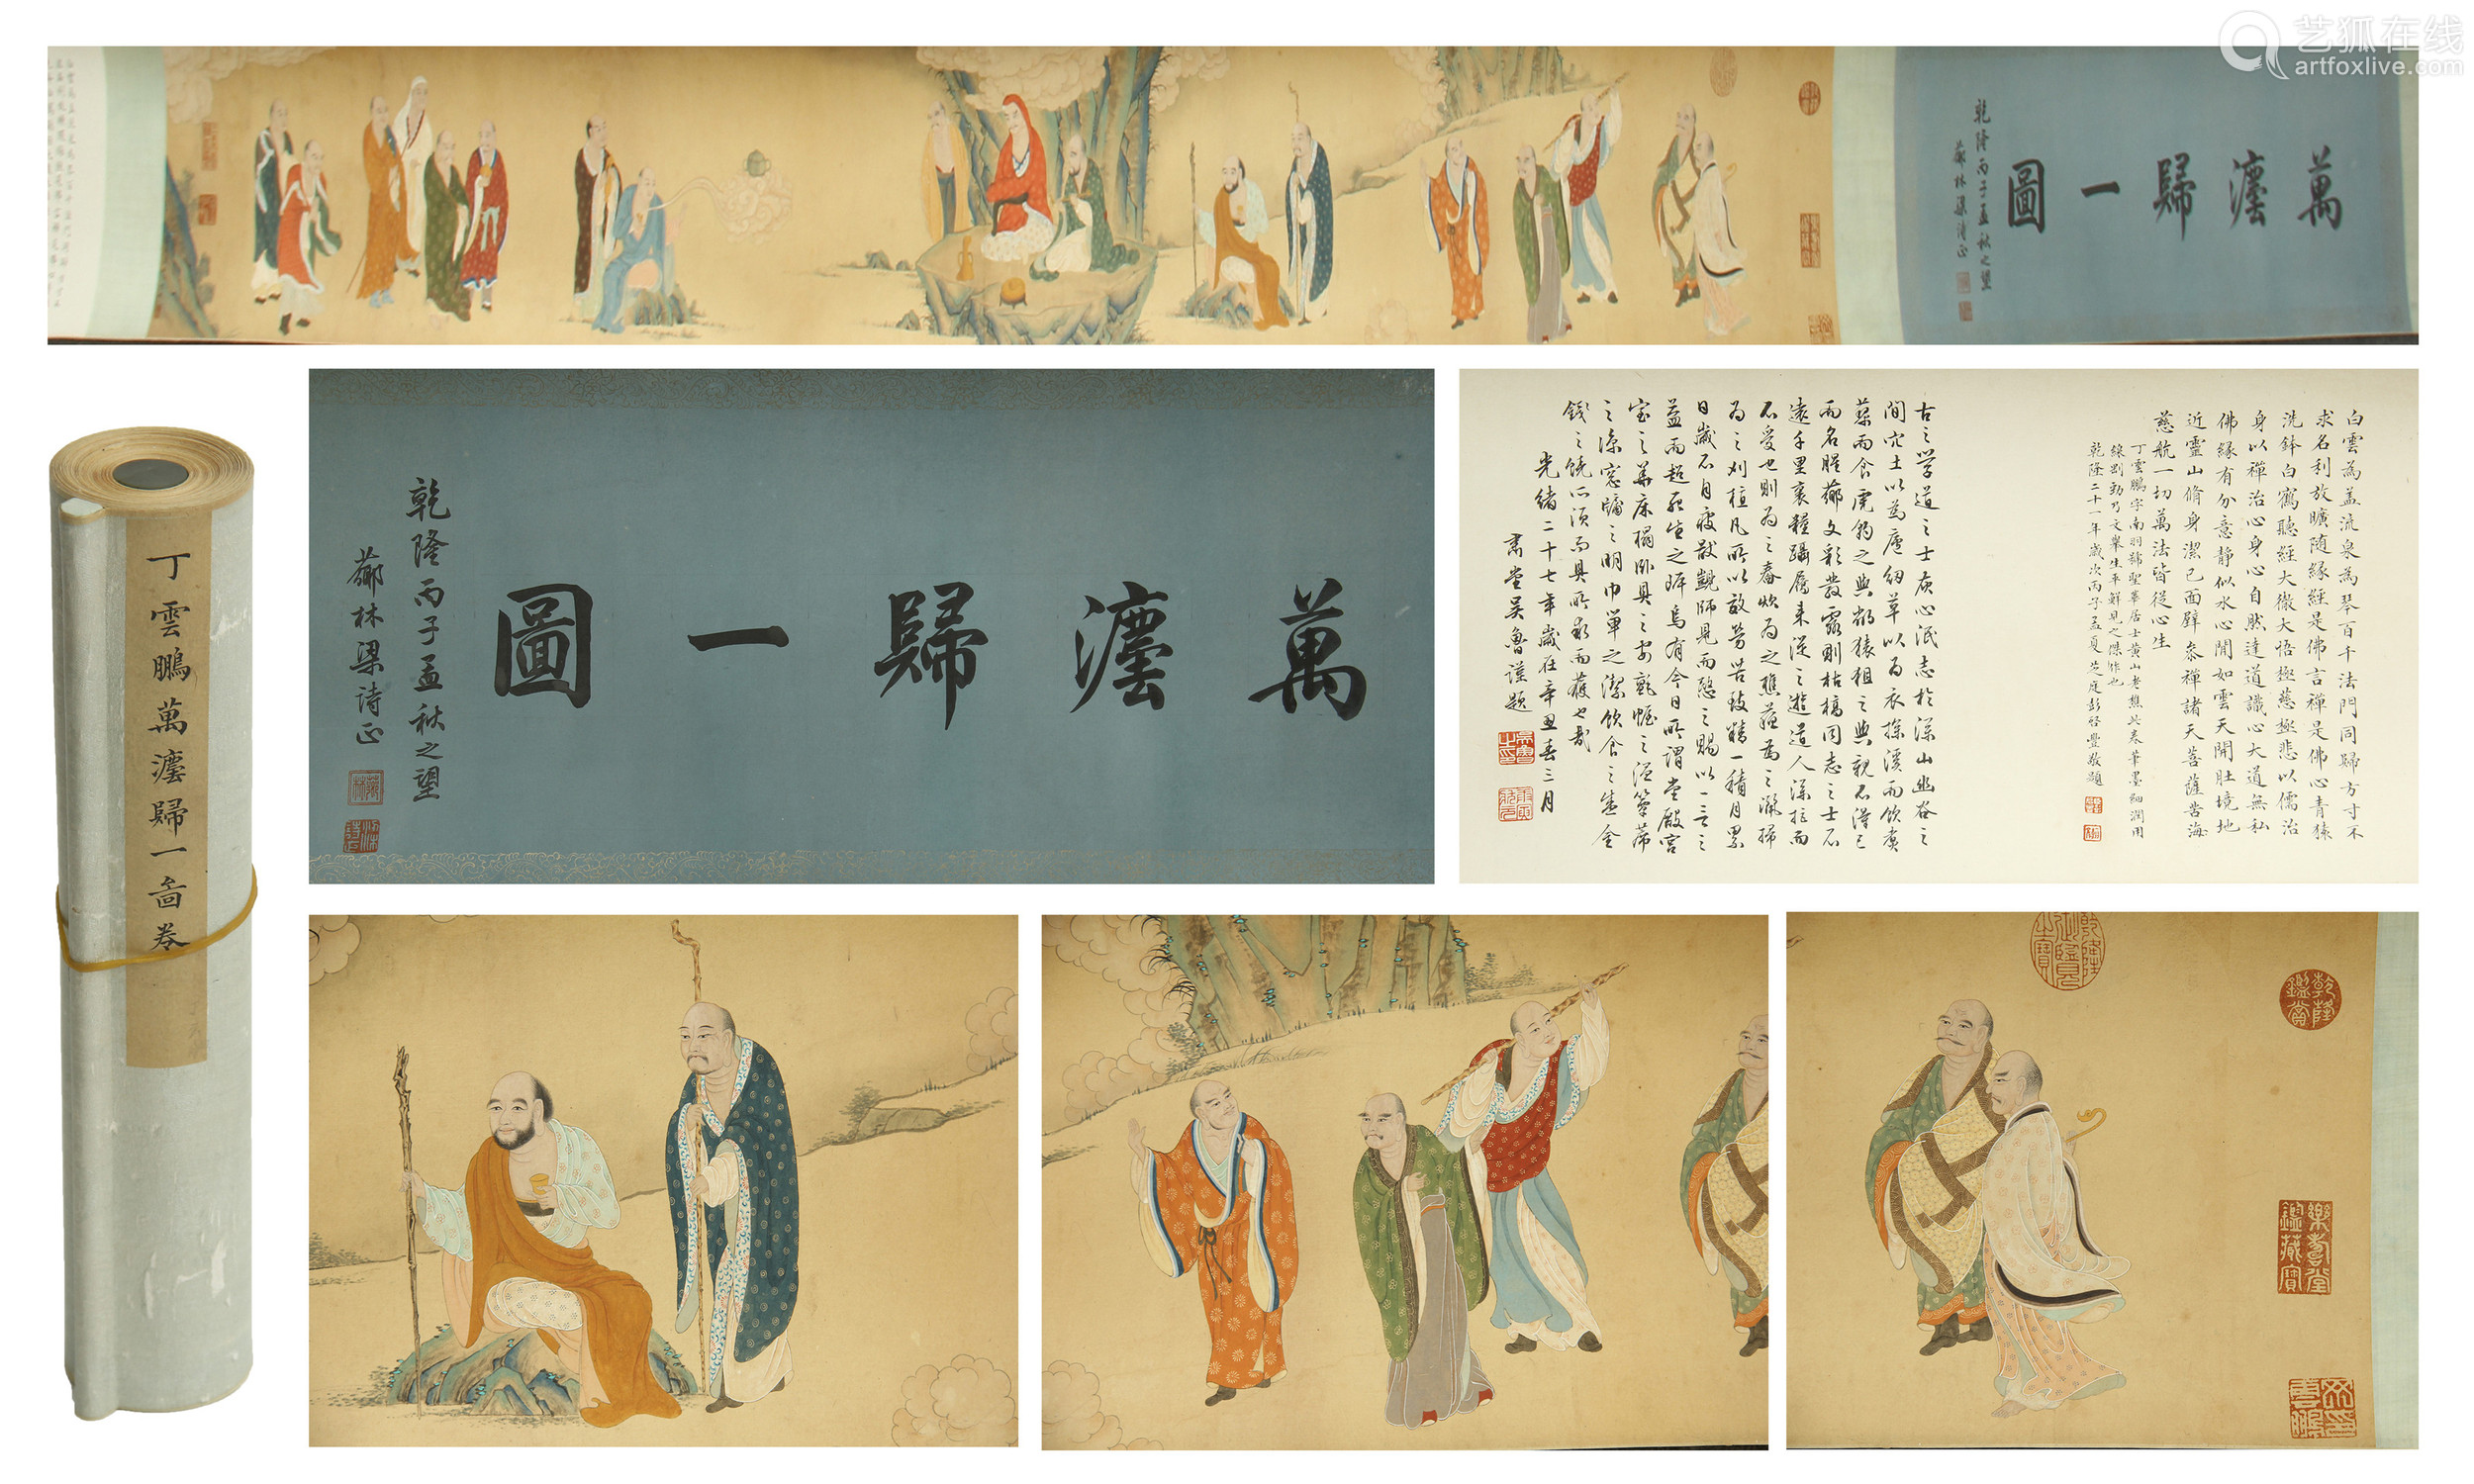 艺狐在线
artfoxlive.com
萬灋歸一圖
乾隆丙子孟秋之望
薌林梁诗正
丁雲鵬萬灋歸一啚卷
萬灋歸一圖
乾隆丙子孟秋之望
薌林梁诗正
白雲為盖流泉為琴百千法門同歸方寸不
求名利放曠随緣經是佛言禪是佛心青猿
洗鉢白鶴聽經大徹大悟極慈極悲以儒治
身以禪治心身心自然達道識心大道無私
佛緣有分意静似水心閒如雲天開肚境地
近靈山脩身潔己面壁叅禪諸天菩薩苦海
慈航一切萬法皆從心生
丁雲鵬字南羽號聖華居士黄山老樵此卷筆墨細潤用
線剛勁乃文舉生平鮮見之傑作也
乾隆二十一年歲次丙子孟夏芝庭彭啓豐敬題
古之学道之士灰心泯志於深山幽谷之
間穴土以為廬紉草以為衣掬溪而飲煮
藜而食虎豹之與鄰猿狙之與親不得已
而名腥薌文彩發露則枯槁同志之士不
遠千里裹糧躡屩来從之遊道人深拒而
不受也則為之舂炊為之樵蘇為之灑掃
為之刈植凡所以效勞苦致精一積月累
日歲不自疲猒覬師見而愍之賜以一言之
益而超死生之岸烏有今日所謂堂殿宫
室之華床榻卧具之安氈幄之温簟席
之涼窓牖之明巾單之潔飲食之盛金
錢之饒所須而具所求而獲也哉
光緒二十七年歲在辛丑春三月
肅堂吴魯謹題
乾隆御覽之寶
乾隆鑑賞
樂壽堂鑑藏寶